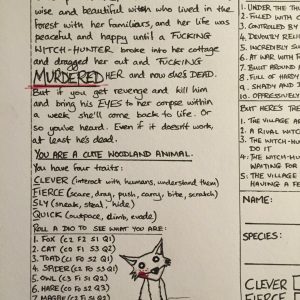 wise and beautiful witch who lived in the
forest with her familiars, and her life was
peaceful and happy until a FUCKING
WITCH-HUNTER broke into her cottage
and dragged her out and FUCKING
MURDERED HER and now she's DEAD.
But if you get revenge and kill him
and bring his EYES to her corpse within
a week she'll come back to life. Or
so you heard. Even if it doesn't work,
at least he's dead.
YOU ARE A CUTE WOODLAND ANIMAL.
You have four traits:
CLEVER (interact with humans, understand them)
FIERCE (scare, drag, push, carry, bite, scratch)
SLY (sneak, steal, hide)
QUICK (outpace, climb, evade)
ROLL A D10 TO SEE WHAT YOU ARE:
1. FOX (C2 F2 S1 Q1)
2. CAT (C0 F1 S3 Q2)
3. TOAD (C1 F1 S2 Q1)
4. SPIDER (C2 F0 S3 Q1)
5. OWL (C3 F1 S1 Q2)
6. HARE (C0 F0 S2 Q3)
7. MAGPIE
1. UNDER THE
2. FILLED WITH
3. CONTROLLED BY
4. DEVOUTLY REL
5. INCREDIBLY S
6. AT WAR WITH
7. BUILT AROUND
8. FULL OF HARDY
9. SHADY AND
10. OPPRESSIVELY
BUT HERE'S THE
1. THE VILLAGE AR
2. A RIVAL WITCH
3. THE WITCH-HUN
DO IT
4. THE WITCH-HUN
WAITING FOR
5. THE VILLAGE
HAVING A FE
NAME:
SPECIES:
CLEVER
FIERCE